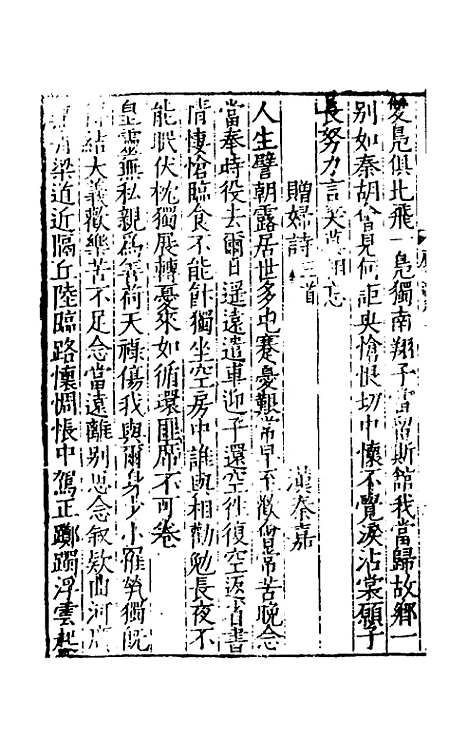 雙鳧俱北飛一鳧獨南翔子當留斯館我當歸故鄉一
別如秦胡會見何詎央愴恨切中懷不覺淚沾裳願子
長努力言笑莫相忘
贈婦詩三首 漢秦嘉
人生譬朝露居世多屯蹇憂艱常早至歡會常苦晚念
當奉時役去爾日遥遠遣車迎子還空往復空返省書
情悽愴臨食不能飰獨坐空房中誰與相勸勉長夜不
能眠伏枕獨展轉憂來如循環匪席不可卷
皇靈無私親為善荷天祿傷我與爾身少小罹煢獨旣
結大義歡樂苦不足念當遠離別思念叙欵曲河廣
梁道近隔丘陸臨路懷惆悵中駕正躑躅浮雲起